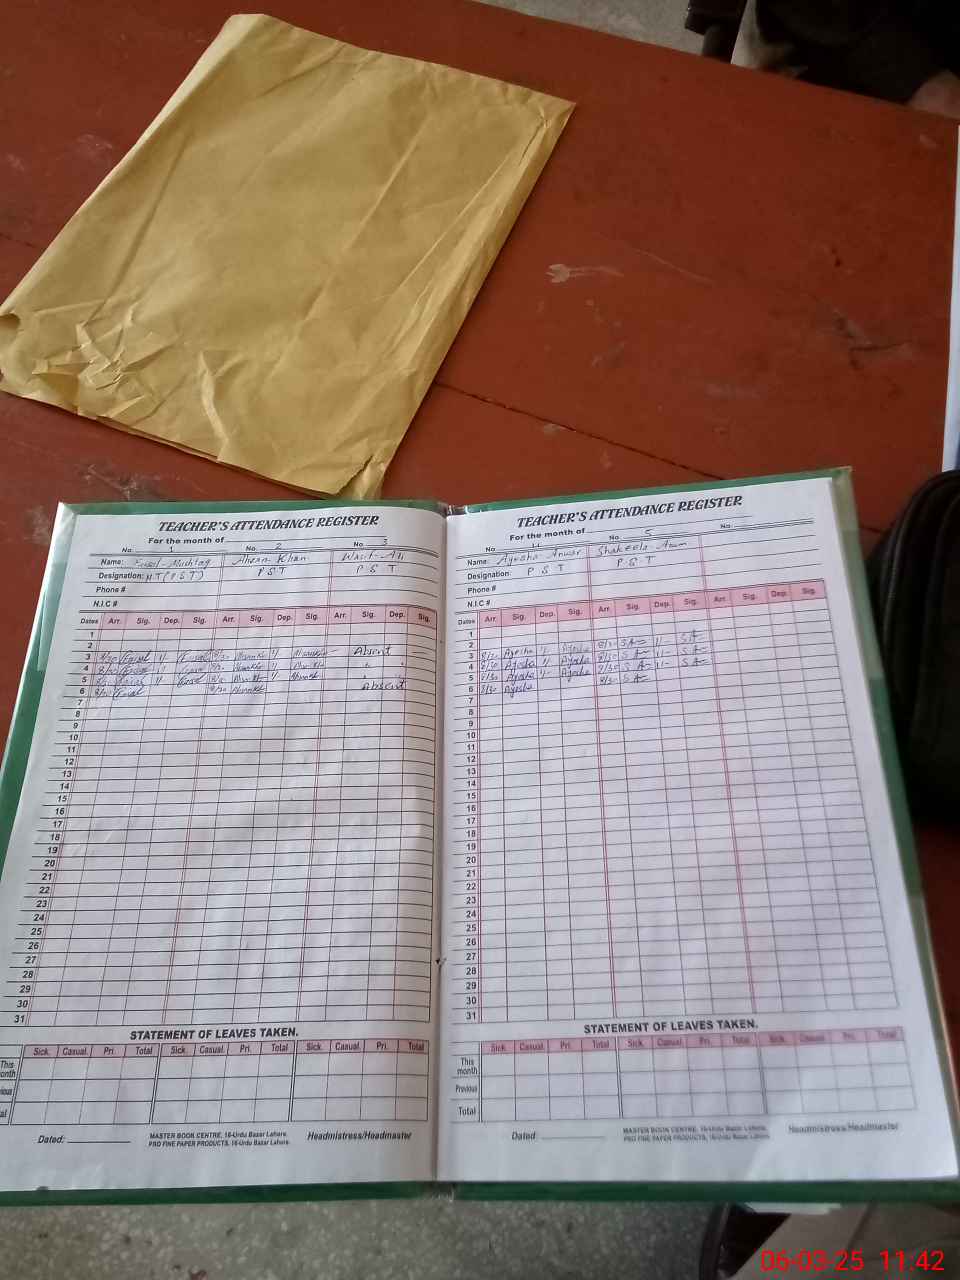 TEACHER'S ATTENDANCE REGISTER
For the month of
No. 1 No. 2 No. 3
Name: Ahsan Khan Wasif-Ali
Designation: H T (P S T) P S T P S T
Phone #
N.I.C #
Dates Arr. Sig. Dep. Sig. Arr. Sig. Dep. Sig. Arr. Sig. Dep. Sig.
1
2
3 Absent
4
5
6 8/30 Absent
7
8
9
10
11
12
13
14
15
16
17
18
19
20
21
22
23
24
25
26
27
28
29
30
31
STATEMENT OF LEAVES TAKEN.
Sick. Casual. Pri. Total Sick. Casual. Pri. Total Sick. Casual. Pri. Total
This
onth
ious
al
Dated:
MASTER BOOK CENTRE, 16-Urdu Bazar Lahore.
PRO FINE PAPER PRODUCTS, 16-Urdu Bazar Lahore.
Headmistress/Headmaster
TEACHER'S ATTENDANCE REGISTER
For the month of
No. 4 No. 5 No.
Name: Ayesha Anwar Shakeela
Designation: P S T P S T
Phone #
N.I.C #
Dates Arr. Sig. Dep. Sig. Arr. Sig. Dep. Sig. Arr. Sig. Dep. Sig.
1
2
3 8/30 Ayesha Ayesha 8/30 SA SA
4 8/30 Ayesha Ayesha 8/30 SA SA
5 8/30 Ayesha Ayesha 8/30 SA SA
6 8/30 Ayesha 8/30 SA
7
8
9
10
11
12
13
14
15
16
17
18
19
20
21
22
23
24
25
26
27
28
29
30
31
STATEMENT OF LEAVES TAKEN.
Sick. Casual. Pri. Total Sick. Casual. Pri. Total Sick. Casual. Pri. Total
This
month
Previous
Total
Dated:
MASTER BOOK CENTRE, 16-Urdu Bazar Lahore.
PRO FINE PAPER PRODUCTS, 16-Urdu Bazar Lahore.
Headmistress/Headmaster
06-03-25 11:42